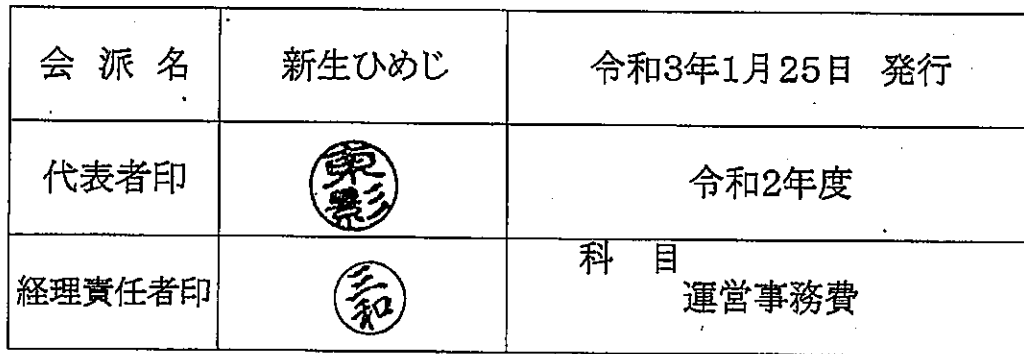 会 派 名 新生ひめじ 令和3年1月25日 発行
代表者印 東影 令和2年度
経理責任者印 三和 科 目
運営事務費